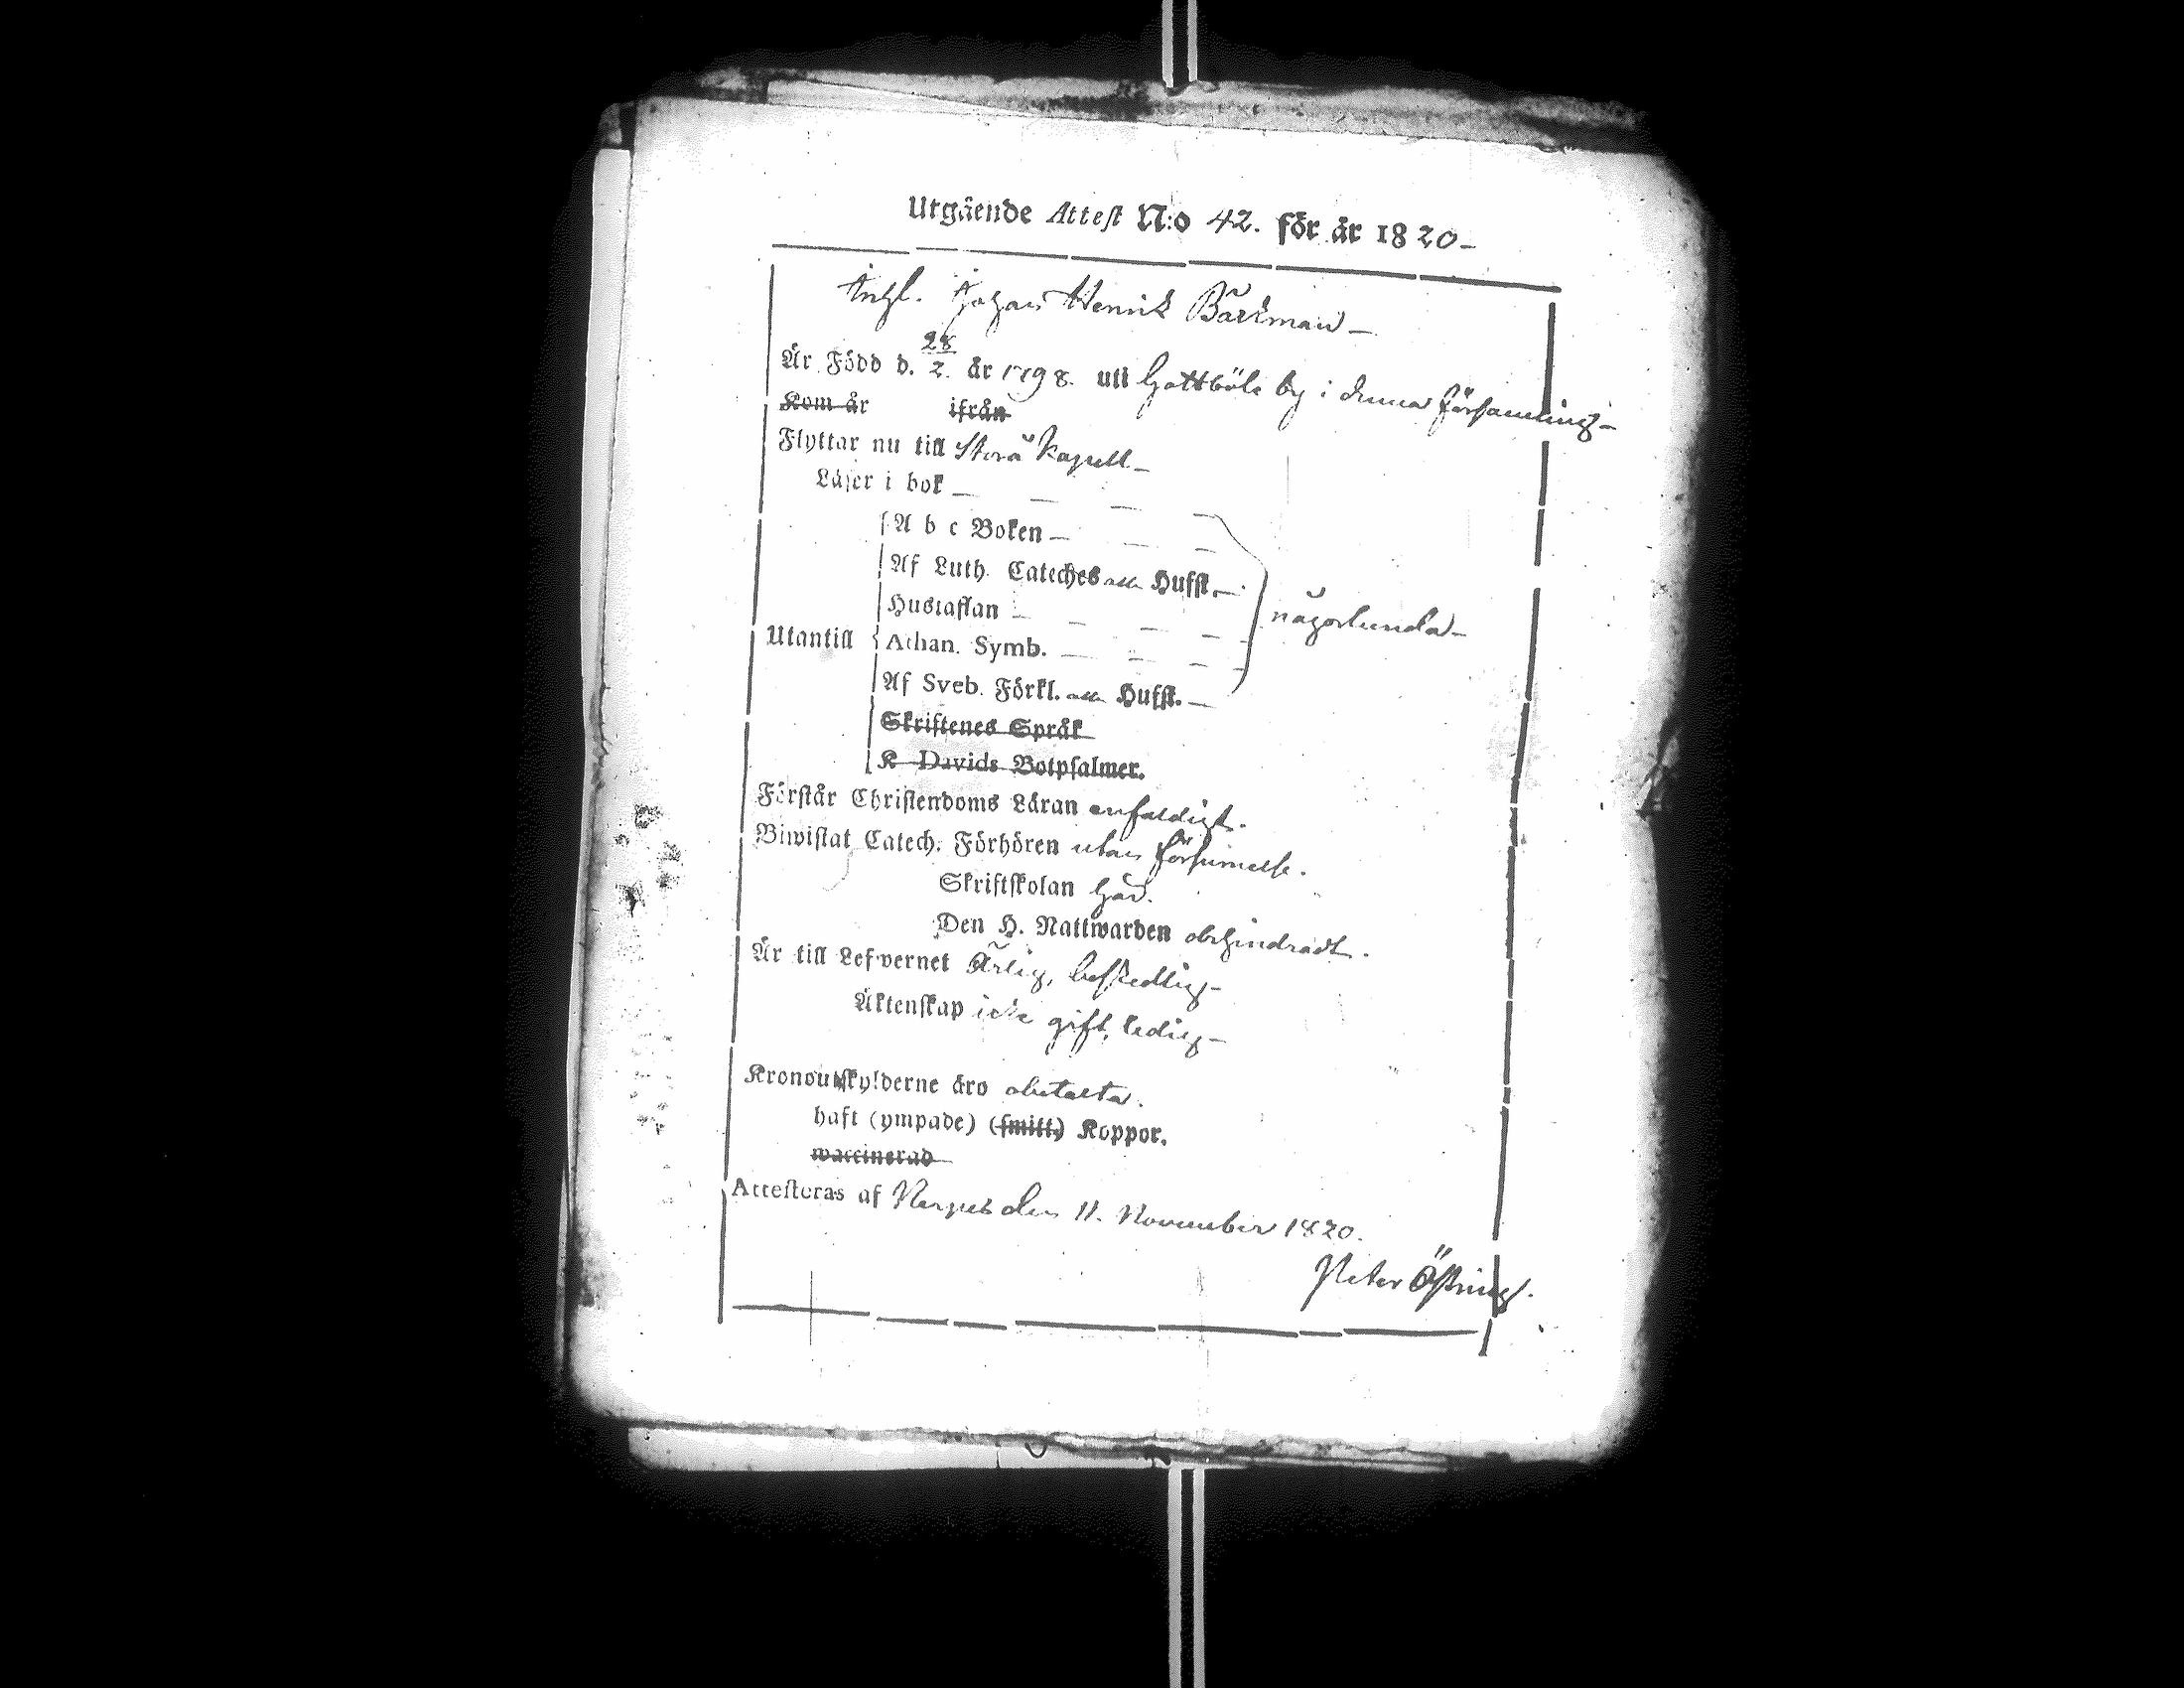 Utgående Attest N:o 42. för år 1820-
Yngl. Johan Henrik Bäckman -
Är Född d. 28/2. år 1798. uti Gottböle by i denna församling -
Kom år ifrån
Flyttar nu till Storå Kapell -
Läser i bok
A b c Boken
Af Luth. Cateches alla Hufst.
Hustaflan
någorlunda -
Utantill Athan. Symb.
Af Sveb. Förkl. alla Hufst.
Skriftenes Språk
K Davids Botpsalmer.
Förstår Christendoms Läran enfaldigt.
Biwistat Catech. Förhören utan försumelse.
Skriftskolan här.
Den H. Nattwarden obehindradt.
Är till Lefvernet Ärlig, beskedlig -
Äktenskap icke gift, ledig -
Kronoutskylderne äro obetalta.
haft (ympade) (smitt.) Koppor.
waccinerad
Attesteras af Nerpes den 11. November 1820.
Peter Östring.